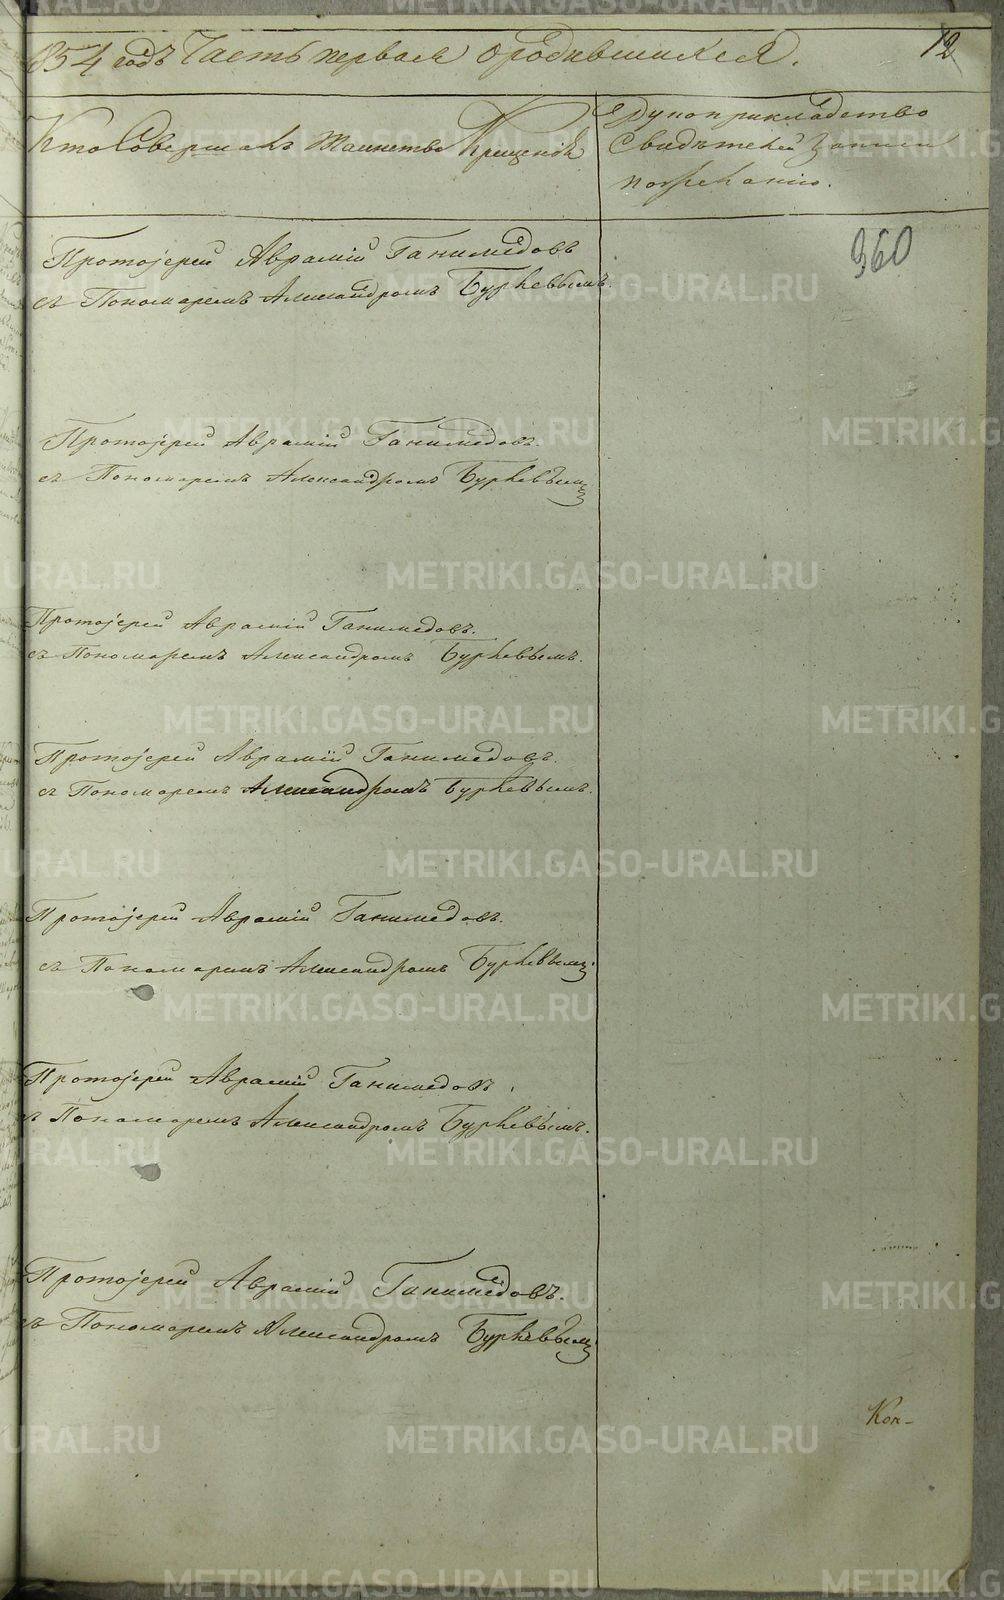 1854 годъ Часть первая о родившихся.
12
Кто Совершалъ Таинство Крещенія
Рукоприкладство
Свидѣтелей записи
по желанію.
360
Протоjерей Аврамiй Ганимедовъ
съ Пономаремъ Александромъ Буркевымъ.
Протоjерей Аврамiй Ганимедовъ.
съ Пономаремъ Александромъ Буркевымъ
Протоjерей Аврамiй Ганимедовъ.
съ Пономаремъ Александромъ Буркевымъ.
Протоjерей Аврамiй Ганимедовъ.
съ Пономаремъ Александромъ Буркевымъ.
Протоjерей Аврамiй Ганимедовъ.
съ Пономаремъ Александромъ Буркевымъ.
Протоjерей Аврамiй Ганимедовъ.
съ Пономаремъ Александромъ Буркевымъ.
Протоjерей Аврамiй Ганимедовъ.
съ Пономаремъ Александромъ Буркевымъ
Кол-
METRIKI.GASO-URAL.RU